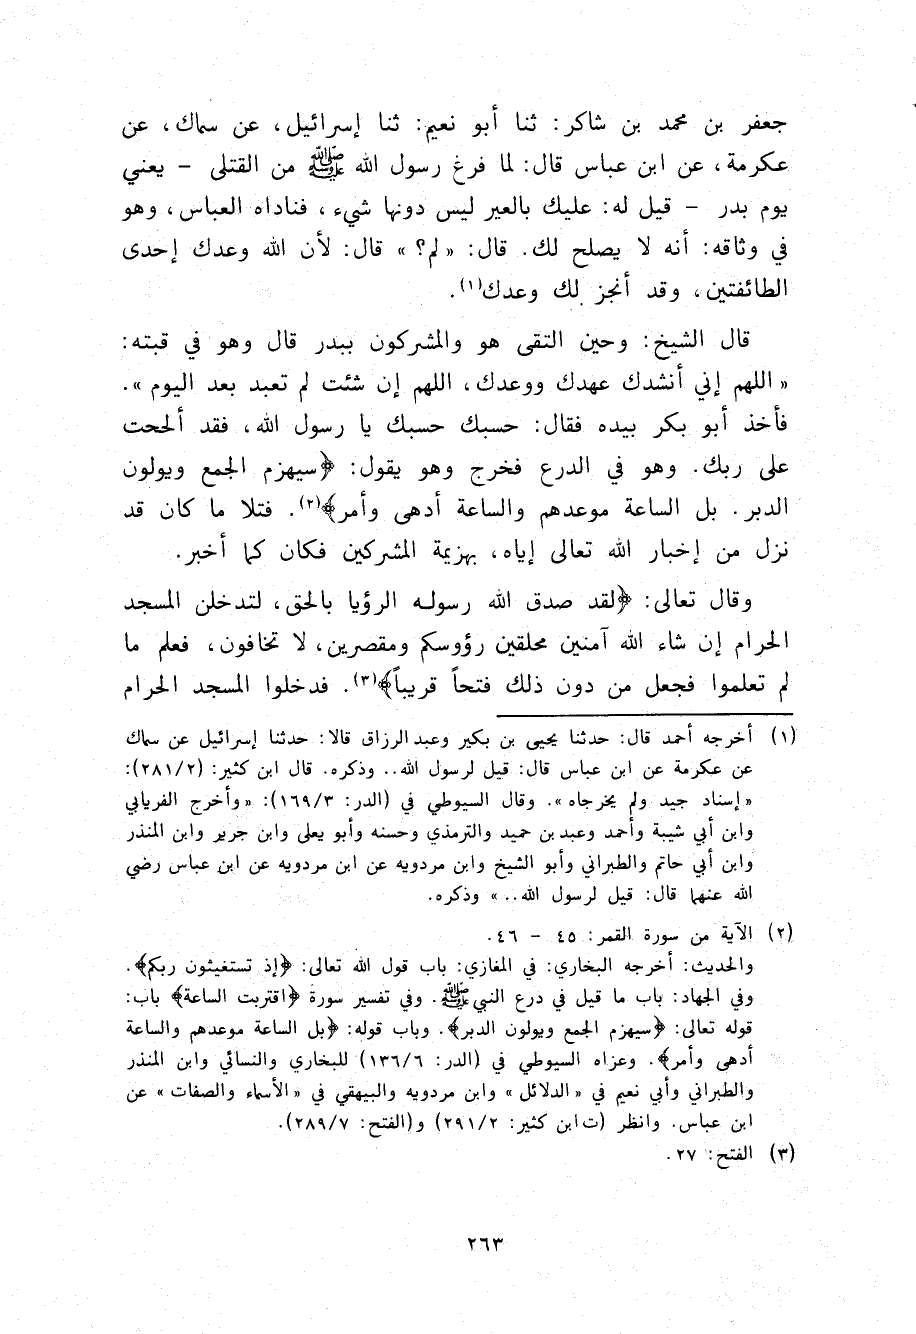 جعفر بن محمد بن شاكر: ثنا أبو نعيم: ثنا إسرائيل، عن سماك، عن
عكرمة، عن ابن عباس قال: لما فرغ رسول الله ﷺ من القتلى - يعني
يوم بدر - قيل له: عليك بالعير ليس دونها شيء، فناداه العباس، وهو
في وثاقه: أنه لا يصلح لك. قال: «لم؟» قال: لأن الله وعدك إحدى
الطائفتين، وقد أنجز لك وعدك(١).
قال الشيخ: وحين التقى هو والمشركون ببدر قال وهو في قبته:
«اللهم إني أنشدك عهدك ووعدك، اللهم إن شئت لم تعبد بعد اليوم».
فأخذ أبو بكر بيده فقال: حسبك حسبك يا رسول الله، فقد ألححت
على ربك. وهو في الدرع فخرج وهو يقول: ﴿سيهزم الجمع ويولون
الدبر. بل الساعة موعدهم والساعة أدهى وأمر﴾(٢). فتلا ما كان قد
نزل من إخبار الله تعالى إياه، بهزيمة المشركين فكان كما أخبر.
وقال تعالى: ﴿لقد صدق الله رسوله الرؤيا بالحق، لتدخلن المسجد
الحرام إن شاء الله آمنين محلقين رؤوسكم ومقصرين، لا تخافون، فعلم ما
لم تعلموا فجعل من دون ذلك فتحاً قريباً﴾(٣). فدخلوا المسجد الحرام
(١) أخرجه أحمد قال: حدثنا يحيى بن بكير وعبد الرزاق قالا: حدثنا إسرائيل عن سماك
عن عكرمة عن ابن عباس قال: قيل لرسول الله.. وذكره. قال ابن كثير: (٢٨١/٢):
«إسناد جيد ولم يخرجاه». وقال السيوطي في (الدر: ١٦٩/٣): «وأخرج الفريابي
وابن أبي شيبة وأحمد وعبد بن حميد والترمذي وحسنه وأبو يعلى وابن جرير وابن المنذر
وابن أبي حاتم والطبراني وأبو الشيخ وابن مردويه عن ابن مردويه عن ابن عباس رضي
الله عنهما قال: قيل لرسول الله..» وذكره.
(٢) الآية من سورة القمر: ٤٥ - ٤٦.
والحديث: أخرجه البخاري: في المغازي: باب قول الله تعالى: ﴿إذ تستغيثون ربكم﴾.
وفي الجهاد: باب ما قيل في درع النبي ﷺ. وفي تفسير سورة ﴿اقتربت الساعة﴾ باب:
قوله تعالى: ﴿سيهزم الجمع ويولون الدبر﴾. وباب قوله: ﴿بل الساعة موعدهم والساعة
أدهى وأمر﴾. وعزاه السيوطي في (الدر: ١٣٦/٦) للبخاري والنسائي وابن المنذر
والطبراني وأبي نعيم في «الدلائل» وابن مردويه والبيهقي في «الأسماء والصفات» عن
ابن عباس. وانظر (ت ابن كثير: ٢٩١/٢) و(الفتح: ٢٨٩/٧).
(٣) الفتح: ٢٧.
٢٦٣